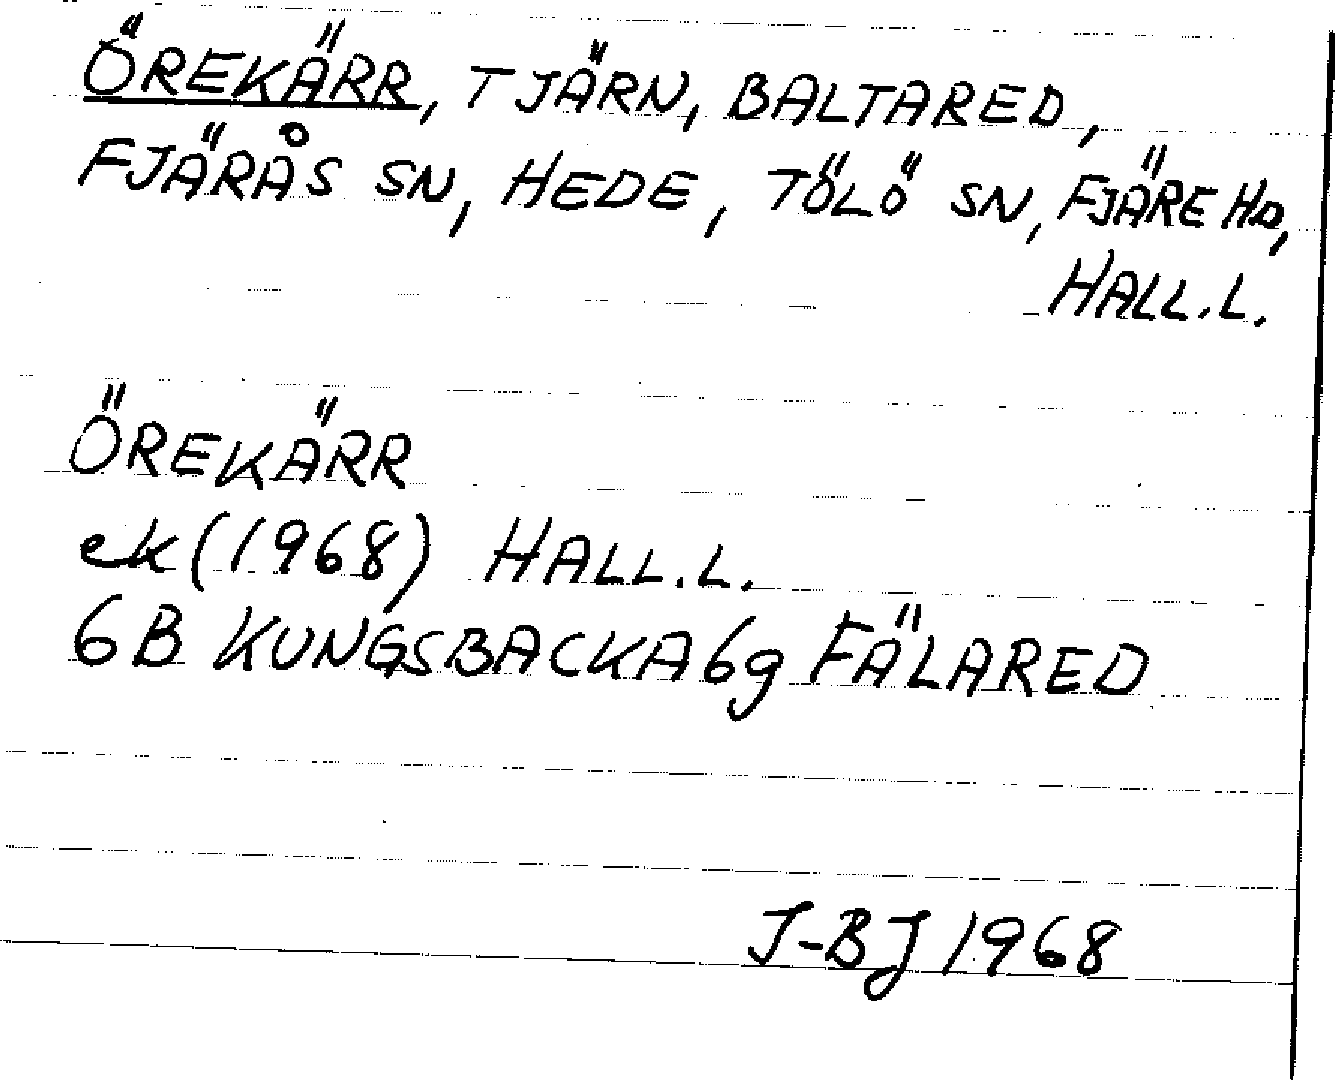 ÖREKÄRR, TJÄRN, BALTARED,
FJÄRÅS SN, HEDE, TÖLÖ SN, FJÄRE HD,
HALL.L.
ÖREKÄRR
ek (1968) HALL.L.
6B KUNGSBACKA 6g FÄLARED
J-BJ 1968